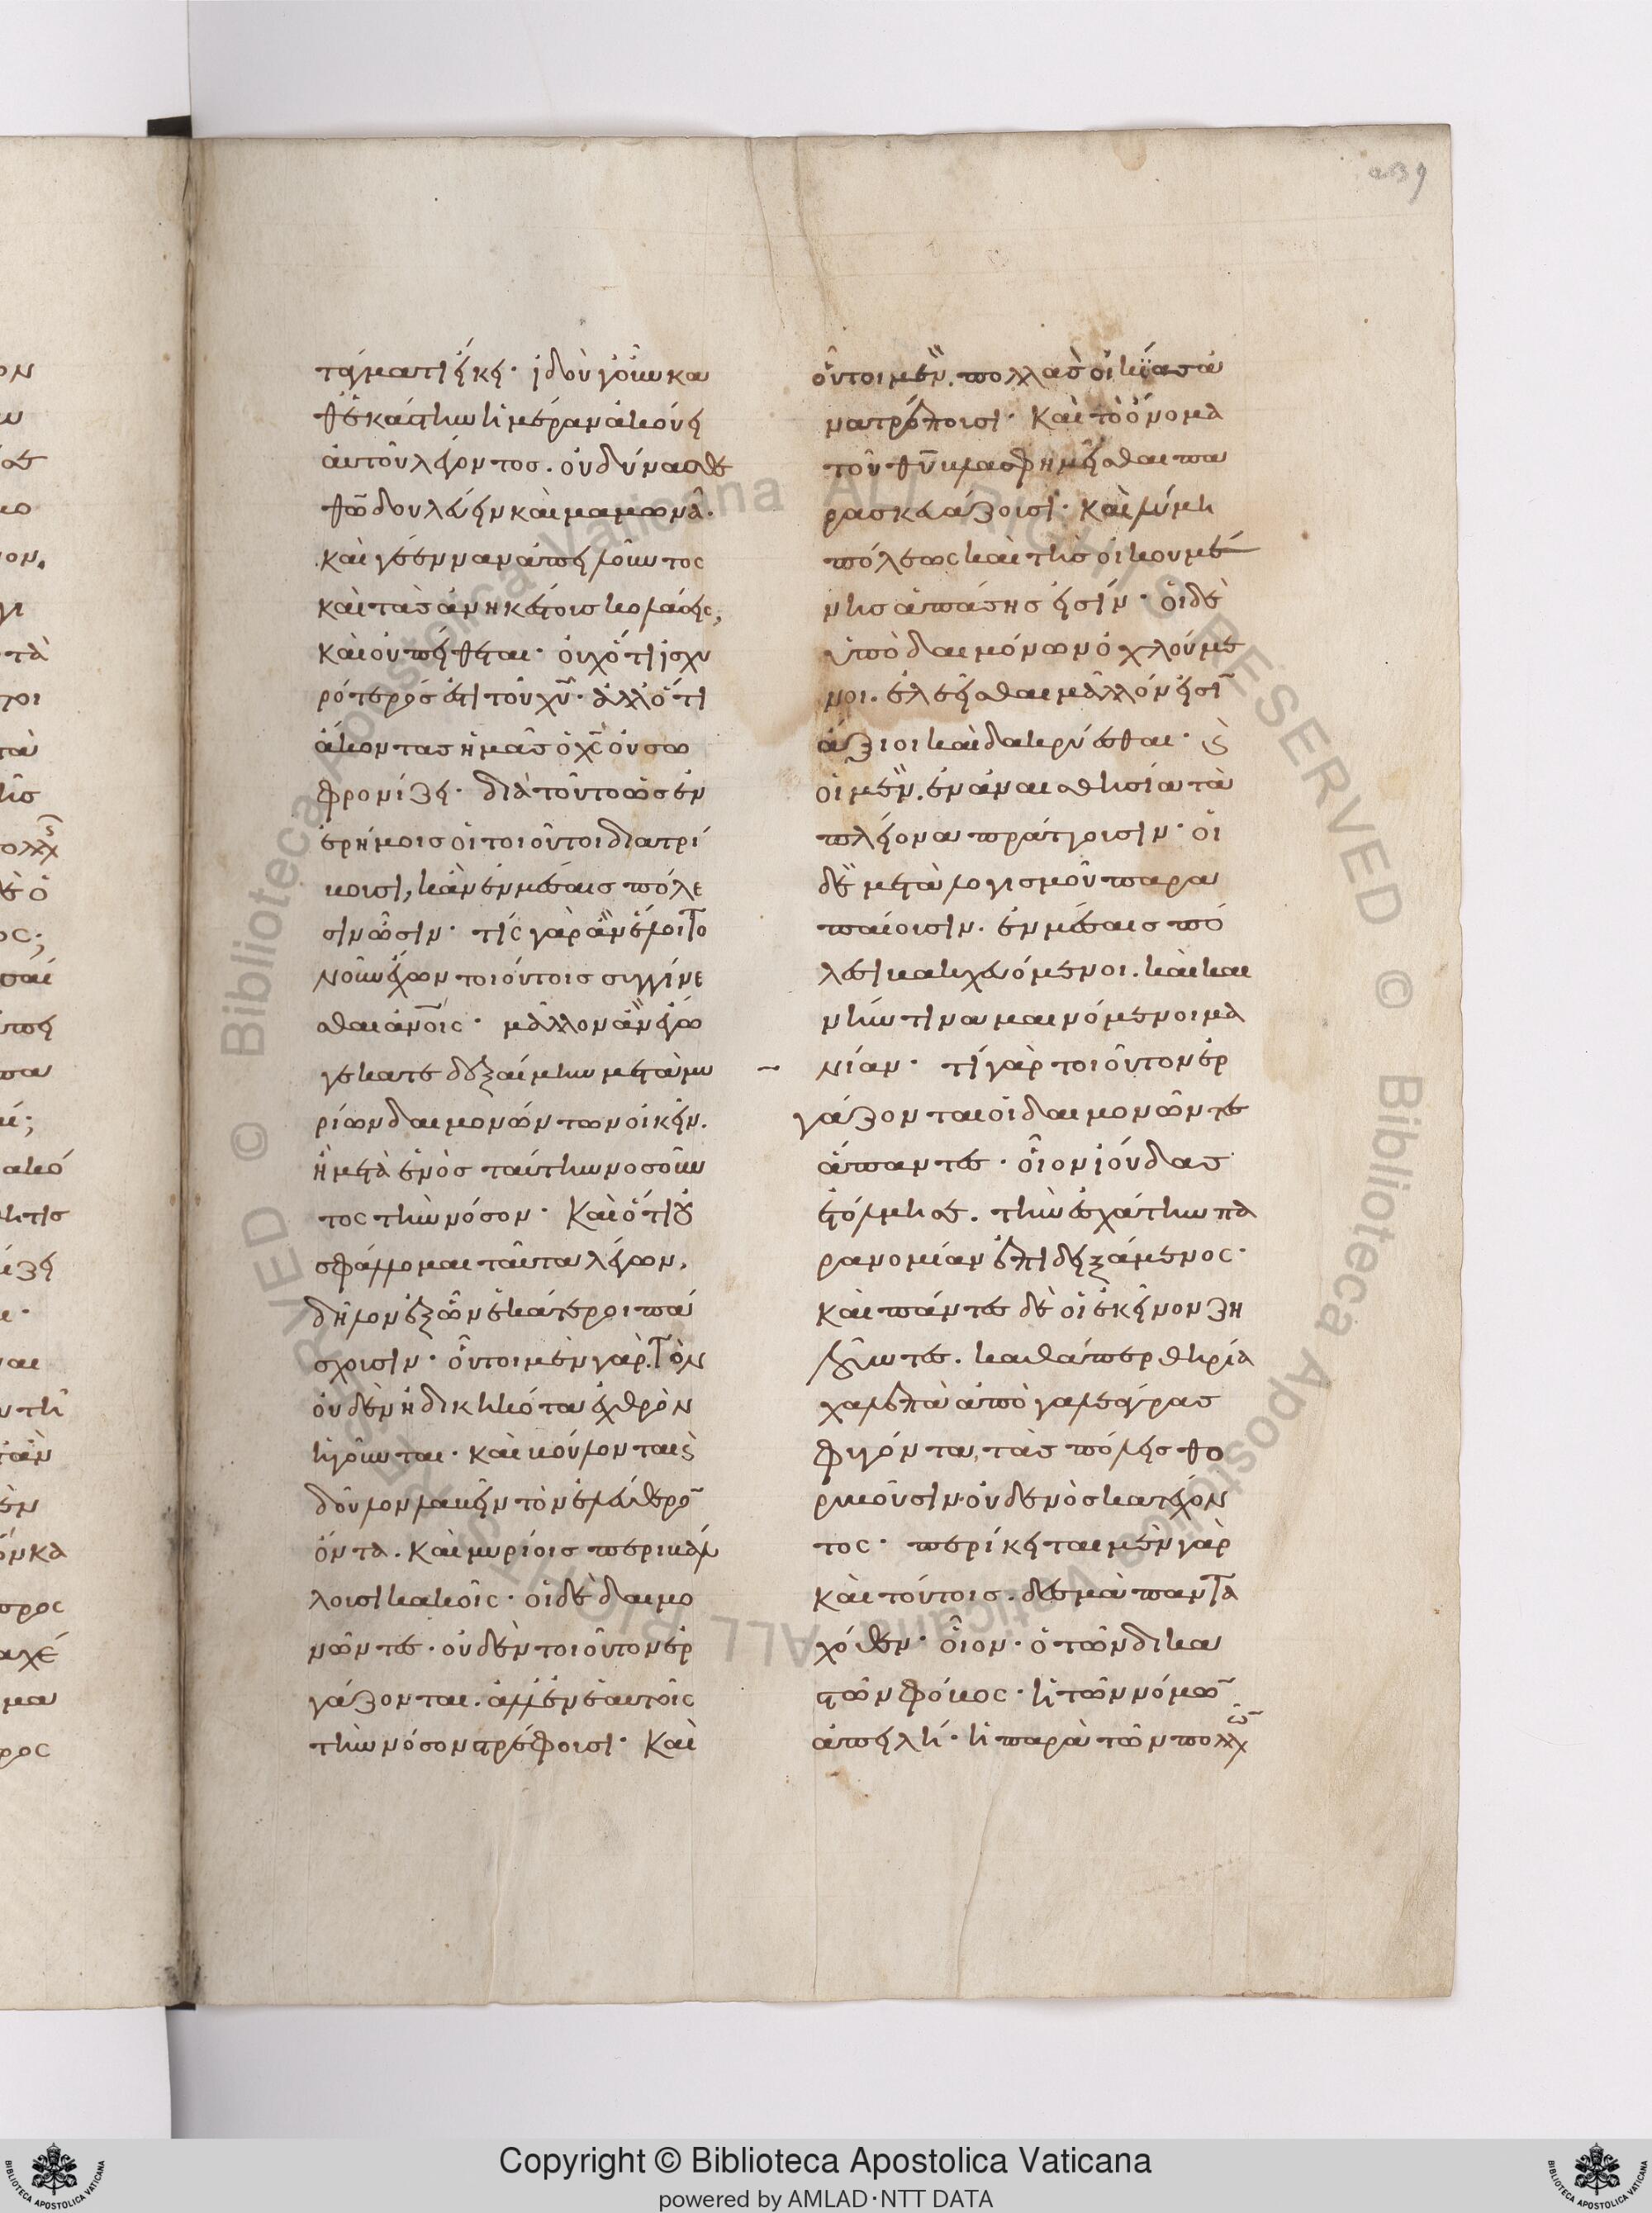 239
τάγματι εἴκει· ἰδοὺ γοῦν κα
θ' ἑκάστην ἡμέραν ἀκούει
αὐτοῦ λέγοντος. οὐ δύνασθε
θω̄ δουλεύειν καὶ μαμωνᾶ.
καὶ γέενναν ἀπειλοῦντος
καὶ τὰς ἀνηκέστους κολάσεις,
καὶ οὐ πείθεται· οὐχ ὅτι ἰσχυ
ρότερός ἐστι τοῦ χῡ· ἀλλ' ὅτι
ἄκοντας ἡμᾶς ὁ χς̄ οὐ σω
φρονίζει· διὰ τοῦτο ὡς ἐν
ἐρήμοις οἱ τοιοῦτοι διατρί
βουσι, κἂν ἐν μέσαις πόλε
σιν ὦσιν· τίς γὰρ ἂν ἕλοιτο
νοῦν ἔχων τοιούτοις συγγίνε
σθαι ἀνοῖς· μᾶλλον ἂν ἐγώ
γε κατεδεξαίμην μετὰ μυ
ρίων δαιμονώντων οἰκεῖν.
ἢ μετὰ ἑνὸς ταύτην νοσοῦν
τος τὴν νόσον· καὶ ὅτι οὐ
σφάλλομαι ταῦτα λέγων,
δῆλον ἐξ ὧν ἑκάτεροι πά
σχουσιν· οὗτοι μὲν γὰρ. τὸν
οὐδὲν ἠδικηκότα ἐχθρὸν
ἡγοῦνται· καὶ βούλονται καὶ
δοῦλον λαβεῖν τὸν ἐλεύθερον
ὄντα. καὶ μυρίοις περιβάλ
λουσι κακοῖς· οἱ δὲ δαιμο
νῶντες· οὐδὲν τοιοῦτον ἐρ
γάζονται. ἀλλ' ἐν ἑαυτοῖς
τὴν νόσον στρέφουσι· καὶ
οὗτοι μὲν. πολλὰς οἰκίας ἀ
νατρέπουσι· καὶ τὸ ὄνομα
τοῦ θῡ βλασφημεῖσθαι πα
ρασκευάζουσι· καὶ λύμη
πόλεως καὶ τῆς οἰκουμέ
νης ἁπάσης εἰσίν· οἱ δὲ
ὑπὸ δαιμόνων ὀχλούμε
νοι. ἐλεεῖσθαι μᾶλλόν εἰσι
ἄξιοι καὶ δακρύεσθαι· καὶ
οἱ μὲν. ἐν ἀναισθησία τὰ
πλείονα πράττουσιν· οἱ
δὲ μετὰ λογισμοῦ παρα
παίουσιν. ἐν μέσαις πό
λεσι βακχευόμενοι. καὶ και
νήν τινα μαινόμενοι μα
νίαν· τί γὰρ τοιοῦτον ἐρ
γάζονται οἱ δαιμονῶντες
ἅπαντες· οἷον ἰούδας
ἐτόλμησε. τὴν ἐσχάτην πα
ρανομίαν ἐπιδειξάμενος·
καὶ πάντες δὲ οἱ ἐκεῖνον ζη
λοῦντες. καθάπερ θηρία
χαλεπὰ ἀπὸ γαλεάγρας
φυγόντα, τὰς πόλεις θο
ρυβοῦσιν· οὐδενὸς κατέχον
τος· περίκειται μὲν γὰρ
καὶ τούτοις. δεσμὰ παντα
χόθεν· οἷον· ὁ τῶν δικα
στῶν φόβος· ἡ τῶν νόμων
ἀπειλή· ἡ παρὰ τῶν πολλῶν